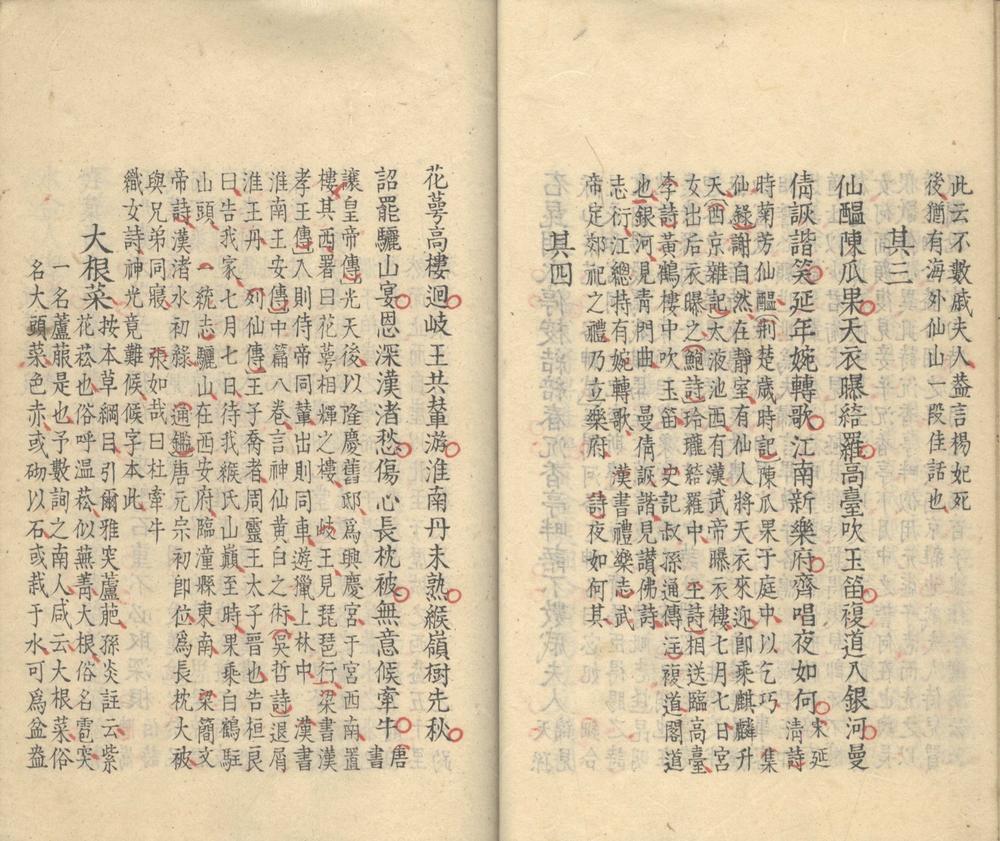 此云不數戚夫人葢言楊妃死
後猶有海外仙山一段佳話也
其三
仙醖陳瓜果天衣曝綺羅高臺吹玉笛複道入銀河曼
倩詼諧笑延年婉轉歌江南新樂府齊唱夜如何宋延
清詩
時菊芳仙醖荆楚歲時記陳瓜果于庭中以乞巧集
仙錄謝自然在靜室有仙人將天衣來迎卽乘麒麟升
天西京雜記太液池西有漢武帝曝衣樓七月七日宮
女出后衣曝之鮑詩玲瓏綹羅中 詩相送臨高臺
李詩黃鶴樓中吹玉笛 史記叔孫通傳注複道閣道
也銀河見青門曲 曼倩詼諧見讃佛詩
志衍江總持有婉轉歌 漢書禮樂志武
帝定郊祀之禮乃立樂府 詩夜如何其
其四
花萼高樓迴岐王共輦游淮南丹未熟緱嶺樹先秋
詔罷驪山宴恩深漢渚愁傷心長枕被無意候牽牛唐書
讓皇帝傳光天後以隆慶舊邸爲興慶宮于宮西南置
樓其西署曰花萼相輝之樓 岐王見琵琶行梁書漢
孝王傳入則侍帝同輦出則同車遊獵上林中 漢書
淮南王安傳中篇八卷言神仙黃白之術吳哲詩退屑
淮王丹 列仙傳王子喬者周靈王太子晉也告桓良
曰告我家七月七日待我緱氏山巔至時果乘白鶴駐
山頭 一統志驪山在西安府臨潼縣東南 梁簡文
帝詩漢渚水初綠 通鑑唐元宗初卽位爲長枕大被
與兄弟同寢 張如哉曰杜牽牛
織女詩神光竟難候候字本此
大根菜
按本草綱目引爾雅突蘆萉孫炎註云紫
花菘也俗呼温菘似蕪菁大根俗名雹突
一名蘆菔是也予數詢之南人咸云大根菜俗
名大頭菜色赤或砌以石或栽于水可爲盆盎